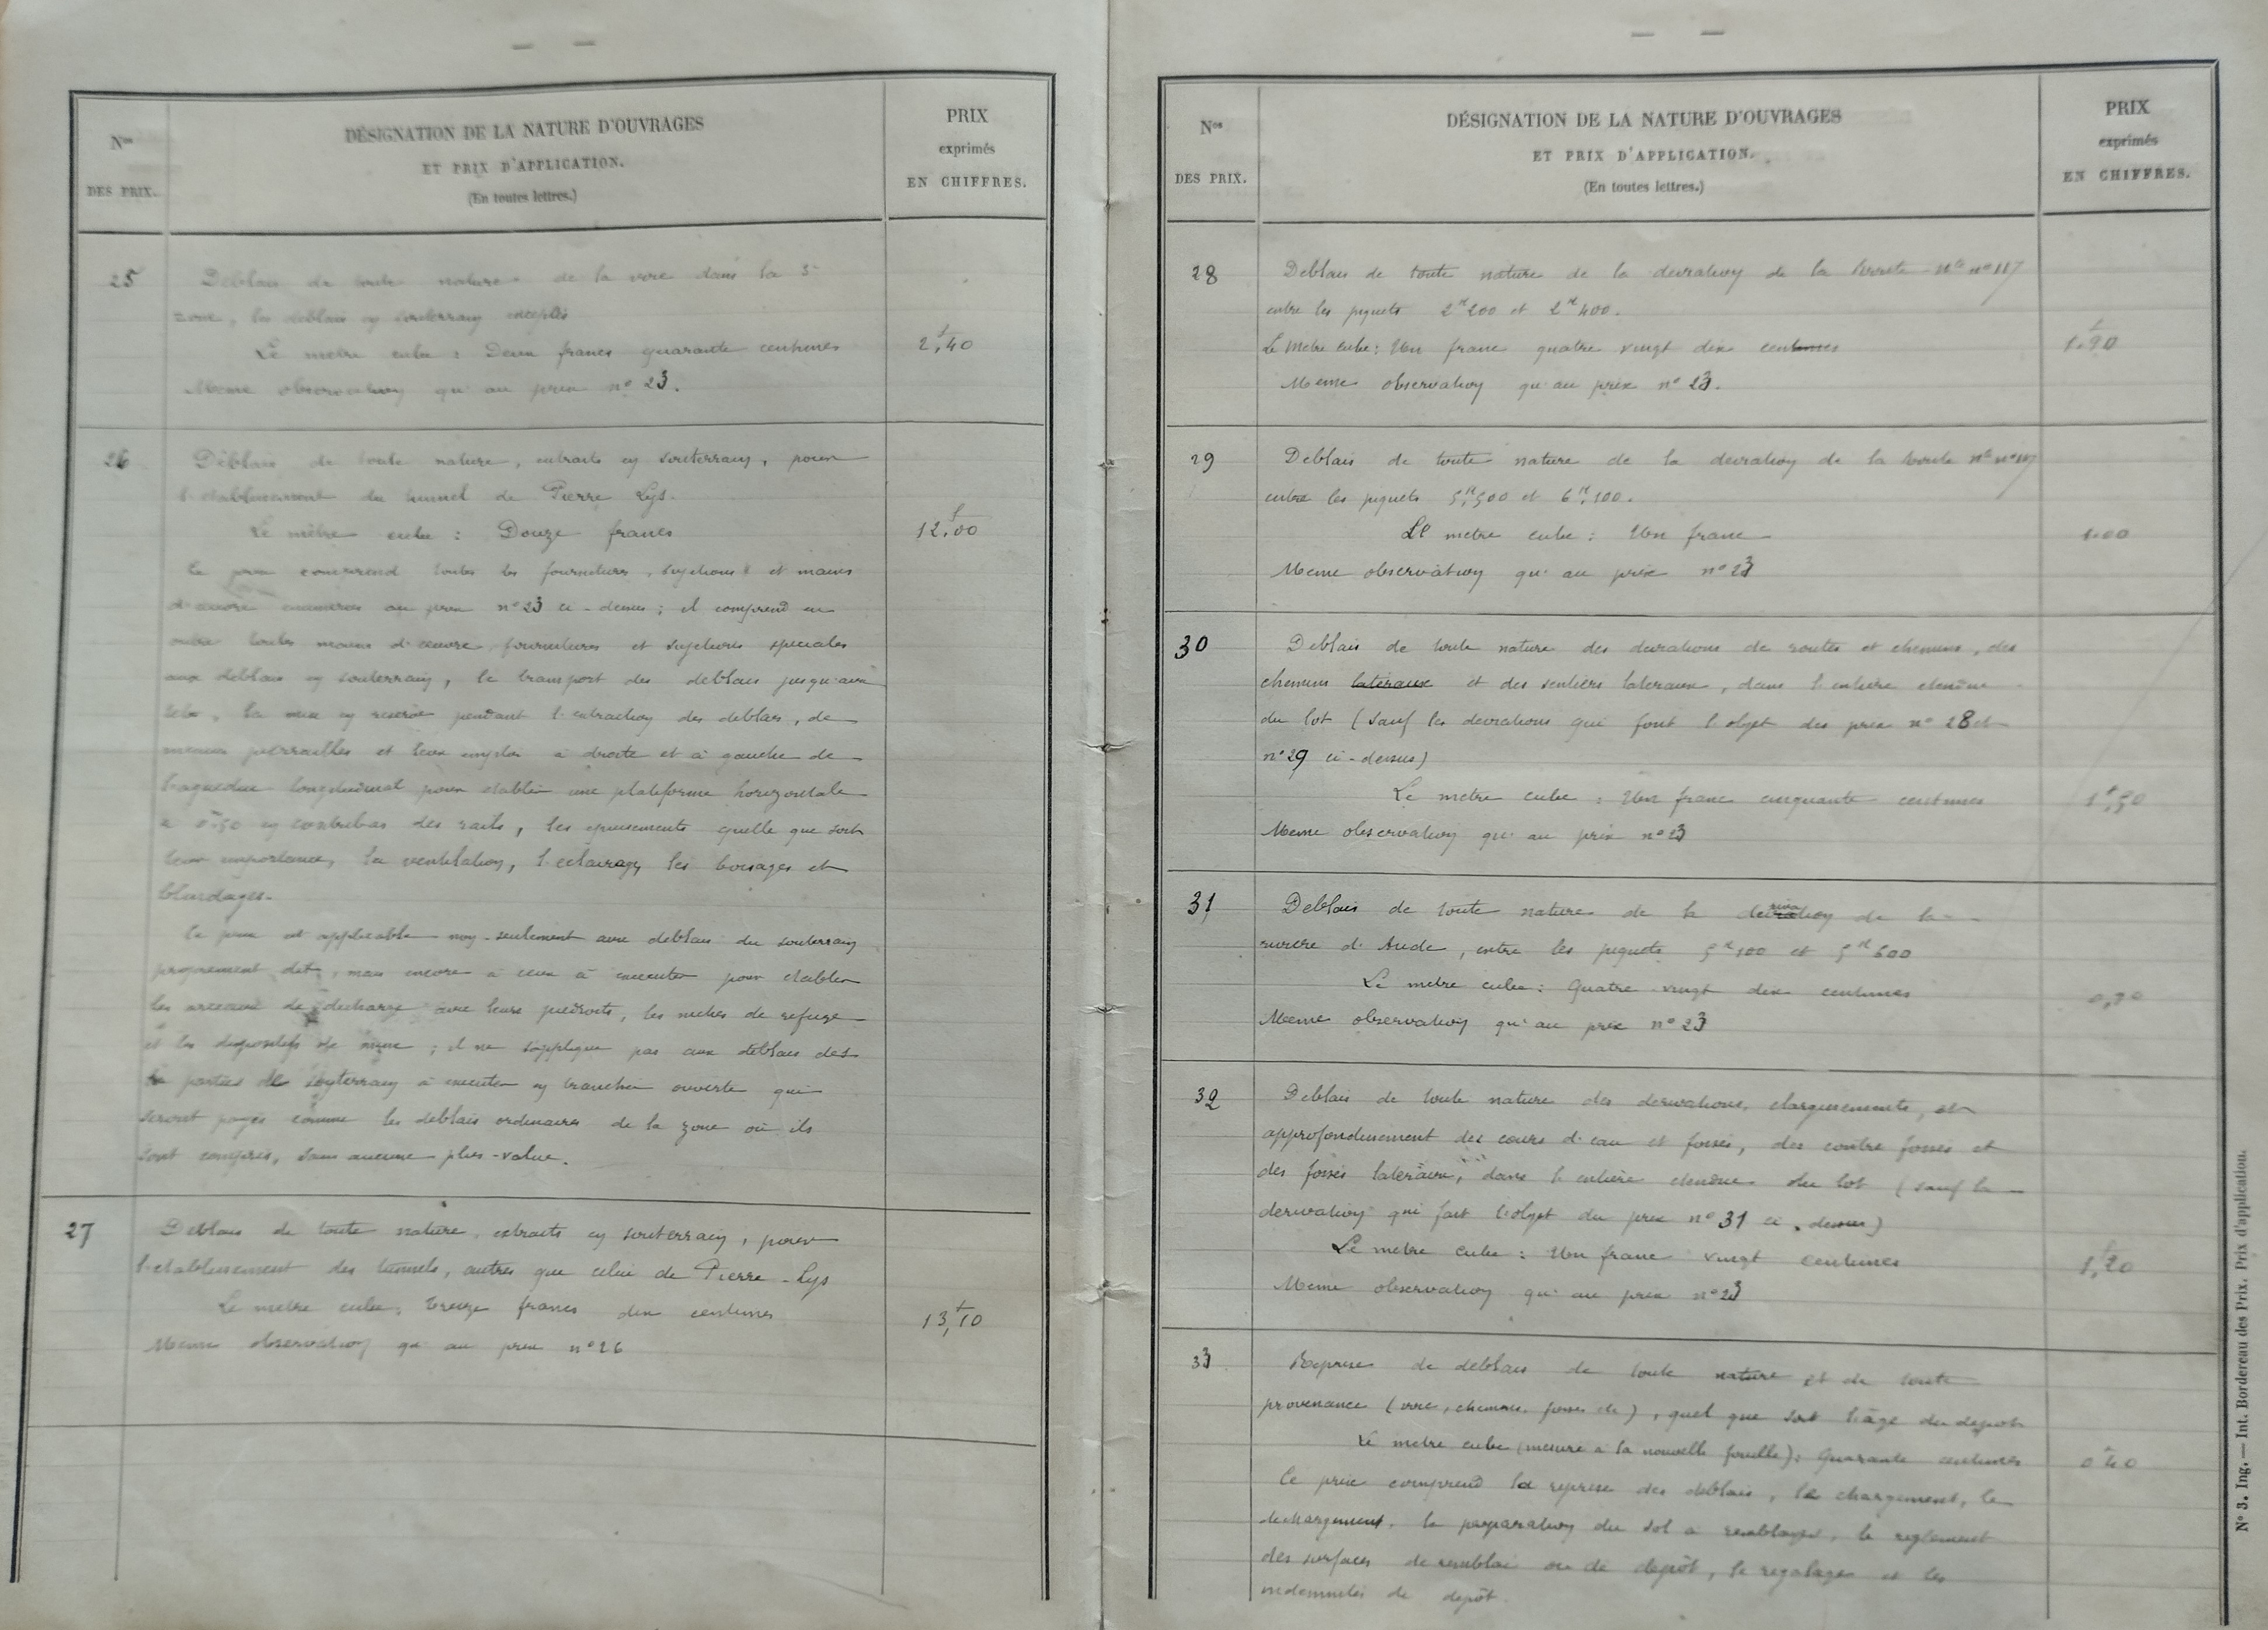 Nos
DES PRIX.
DÉSIGNATION DE LA NATURE D'OUVRAGES
ET PRIX D'APPLICATION.
(En toutes lettres.)
PRIX
exprimés
EN CHIFFRES.
25
Déblais de toute nature de la voie dans la 3e
zone, les déblais en souterrain exceptés
Le mètre cube : Deux francs quarante centimes
2f,40
Meme observation qu'au prix n° 23.
26
Déblais de toute nature, extraits en souterrain, pour
l'etablissement du tunnel de Pierre Lys.
Le mètre cube : Douze francs
12f,00
Ce prix comprend toutes les fournitures, sujetions et mains
d'œuvre enumeres au prix n° 23 ci-dessus ; il comprend en
outre toutes mains d'œuvre, fournitures et sujetions speciales
aux déblais en souterrain, le transport des déblais jusqu'aux
têtes, la mise en reserve pendant l'extraction des déblais, de
menues pierrailles et leur emploi à droite et à gauche de
l'aqueduc longitudinal pour etablir une plateforme horizontale
a 0m50 en contrebas des rails, les epuisements quelle que soit
leur importance, la ventilation, l'eclairage, les boisages et
blindages.
Ce prix est applicable non-seulement aux deblais du souterrain
proprement dit, mais encore à ceux à executer pour etablir
les arceaux de decharge avec leurs piedroits, les niches de refuge
et les dispositifs de mine ; il ne s'applique pas aux déblais des
parties de souterrain à executer en tranchée ouverte qui
seront payés comme les déblais ordinaires de la zone où ils
sont compris, sans aucune plus-value.
27
Deblais de toute nature, extraits en souterrain, pour
l'etablissement des tunnels, autres que celui de Pierre-Lys
Le metre cube, treize francs dix centimes
13f,10
Meme observation qu'au prix n° 26
Nos
DES PRIX.
DÉSIGNATION DE LA NATURE D'OUVRAGES
ET PRIX D'APPLICATION.
(En toutes lettres.)
PRIX
exprimés
EN CHIFFRES.
28
Deblais de toute nature de la deviation de la Route Nle n° 117
entre les piquets 2K200 et 2K400.
Le Metre Cube : Un franc quatre vingt dix centimes
1f.90
Meme observation qu'au prix n° 23.
29
Deblais de toute nature de la deviation de la Route Nle n° 117
entre les piquets 5K,500 et 6K,100.
Le metre cube : Un franc
1.00
Meme observation qu'au prix n° 23
30
Deblais de toute nature des deviations de routes et chemins, des
chemins lateraux et des sentiers lateraux, dans l'entière etendue
du lot (sauf les deviations qui font l'objet des prix n° 28 et
n° 29 ci-dessus)
Le metre cube : Un franc cinquante centimes
1f,50
Meme observation qu'au prix n° 23
31
Deblais de toute nature de la derivation de la
riviere d'Aude, entre les piquets 5K100 et 5K600
Le metre cube : Quatre vingt dix centimes
0,90
Meme observation qu'au prix n° 23
32
Deblais de toute nature des derivations, elargissements, et
approfondissement des cours d'eau et fossés, des contre fossés et
des fossés lateraux, dans l'entière etendue du lot (sauf la
derivation qui fait l'objet du prix n° 31 ci-dessus)
Le metre cube : Un franc vingt centimes
1f,20
Meme observation qu'au prix n° 23
33
Reprise de deblais de toute nature et de toute
provenance (voie, chemins, fossés etc), quel que soit l'âge du depôt
Le metre cube (mesuré à la nouvelle fouille) : Quarante centimes
0f40
Ce prix comprend la reprise des déblais, le chargement, le
dechargement, la preparation du sol à remblayer, le reglement
des surfaces de remblai ou de depôt, le regalage et les
indemnités de depôt.
N° 3. Ing. — Int. Bordereau des Prix. Prix d'application.